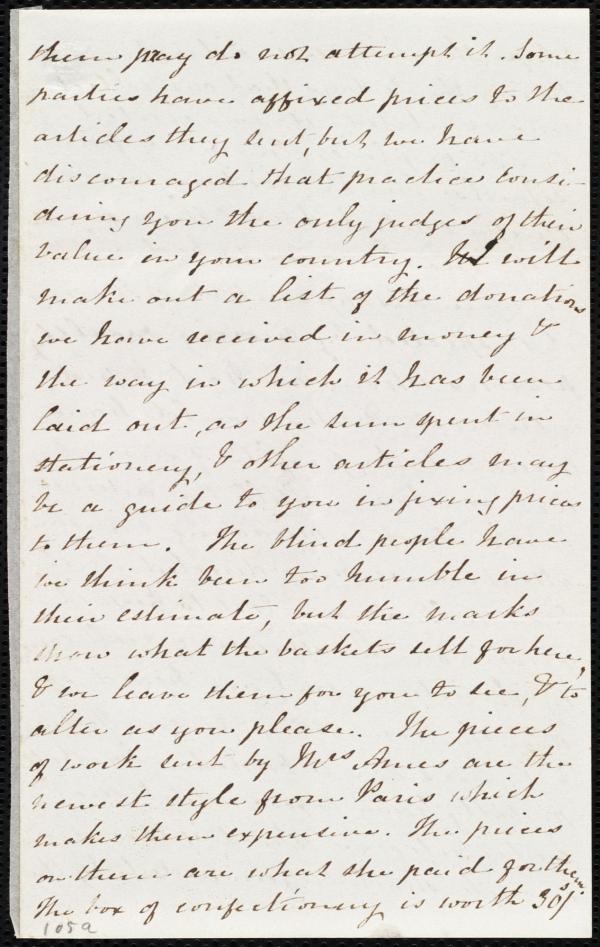 them pray do not attempt it. Some
parties have affixed prices to the
articles they sent, but we have
discouraged that practice consi-
dering you the only judges of their
value in your country. I will
make out a list of the donations
we have received in money &
the way in which it has been
laid out, as the sum spent in
stationery, & other articles may
be a guide to you in fixing prices
to them. The blind people have
we think been too humble in
their estimate, but the marks
show what the baskets sell for here,
& we leave them for you to see, & to
alter as you please. The pieces
of work sent by Mrs Ames are the
newest style from Paris which
makes them expensive. The prices
on them are what she paid for them.
The box of confectionery is worth 30s/
105a